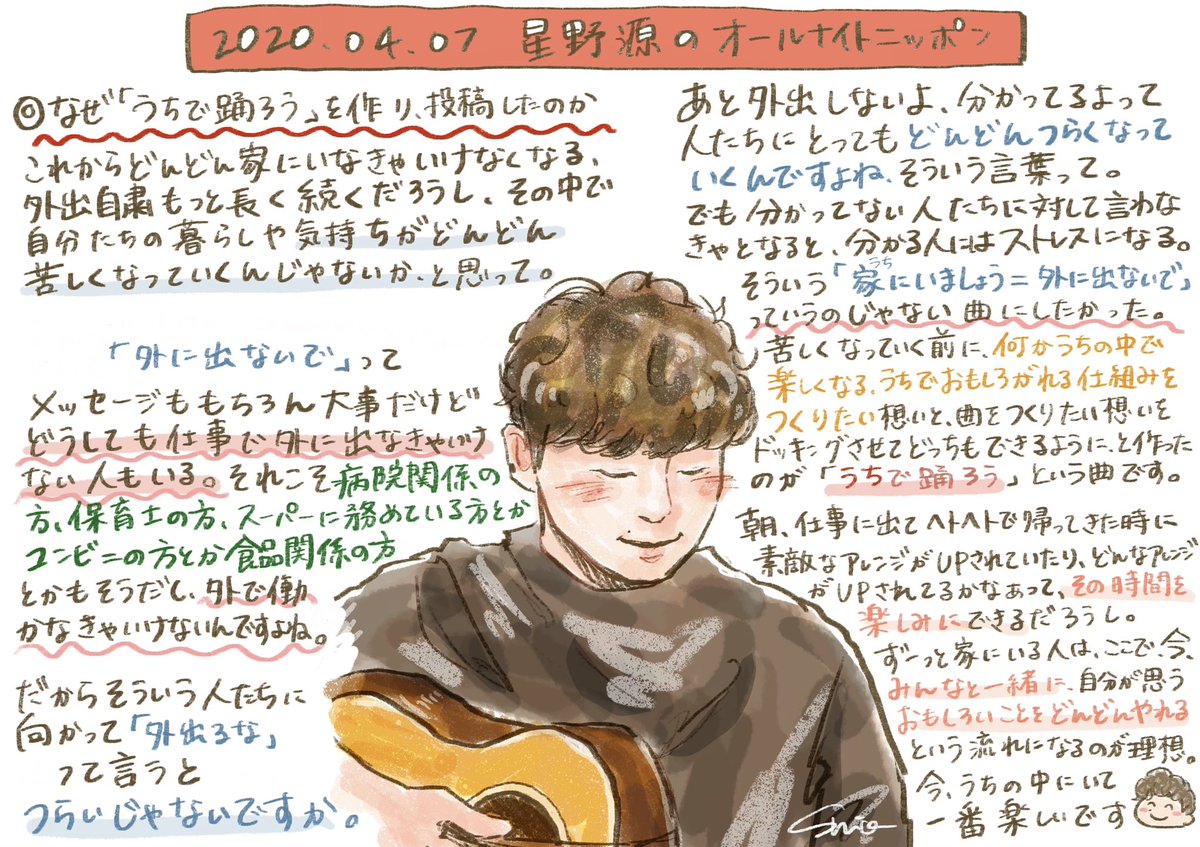 2020.04.07 星野源のオールナイトニッポン
◎なぜ「うちで踊ろう」を作り、投稿したのか
これからどんどん家にいなきゃいけなくなる、
外出自粛もっと長く続くだろうし、その中で
自分たちの暮らしや気持ちがどんどん
苦しくなっていくんじゃないか、と思って。
「外に出ないで」って
メッセージももちろん大事だけど
どうしても仕事で外に出なきゃいけ
ない人もいる。それこそ病院関係の
方、保育士の方、スーパーに務めている方とか
コンビニの方とか食品関係の方
とかもそうだし、外で働
かなきゃいけないんですよね。
だからそういう人たちに
向かって「外出るな」
って言うと
つらいじゃないですか。
あと外出しないよ、分かってるよって
人たちにとってもどんどんつらくなって
いくんですよね、そういう言葉って。
でも分かってない人たちに対して言わな
きゃとなると、分かる人にはストレスになる。
そういう「家にいましょう=外に出ないで」
うち
っていうのじゃない曲にしたかった。
苦しくなっていく前に、何かうちの中で
楽しくなる、うちでおもしろがれる仕組みを
つくりたい想いと、曲をつくりたい想いを
ドッキングさせてどっちもできるように、と作った
のが「うちで踊ろう」という曲です。
朝、仕事に出てヘトヘトで帰ってきた時に
素敵なアレンジがUPされていたり、どんなアレンジ
がUPされてるかなあって、その時間を
楽しみにできるだろうし。
ずーっと家にいる人は、ここで、今、
みんなと一緒に、自分が思う
おもしろいことをどんどんやれる
という流れになるのが理想。
今、うちの中にいて
一番楽しいです